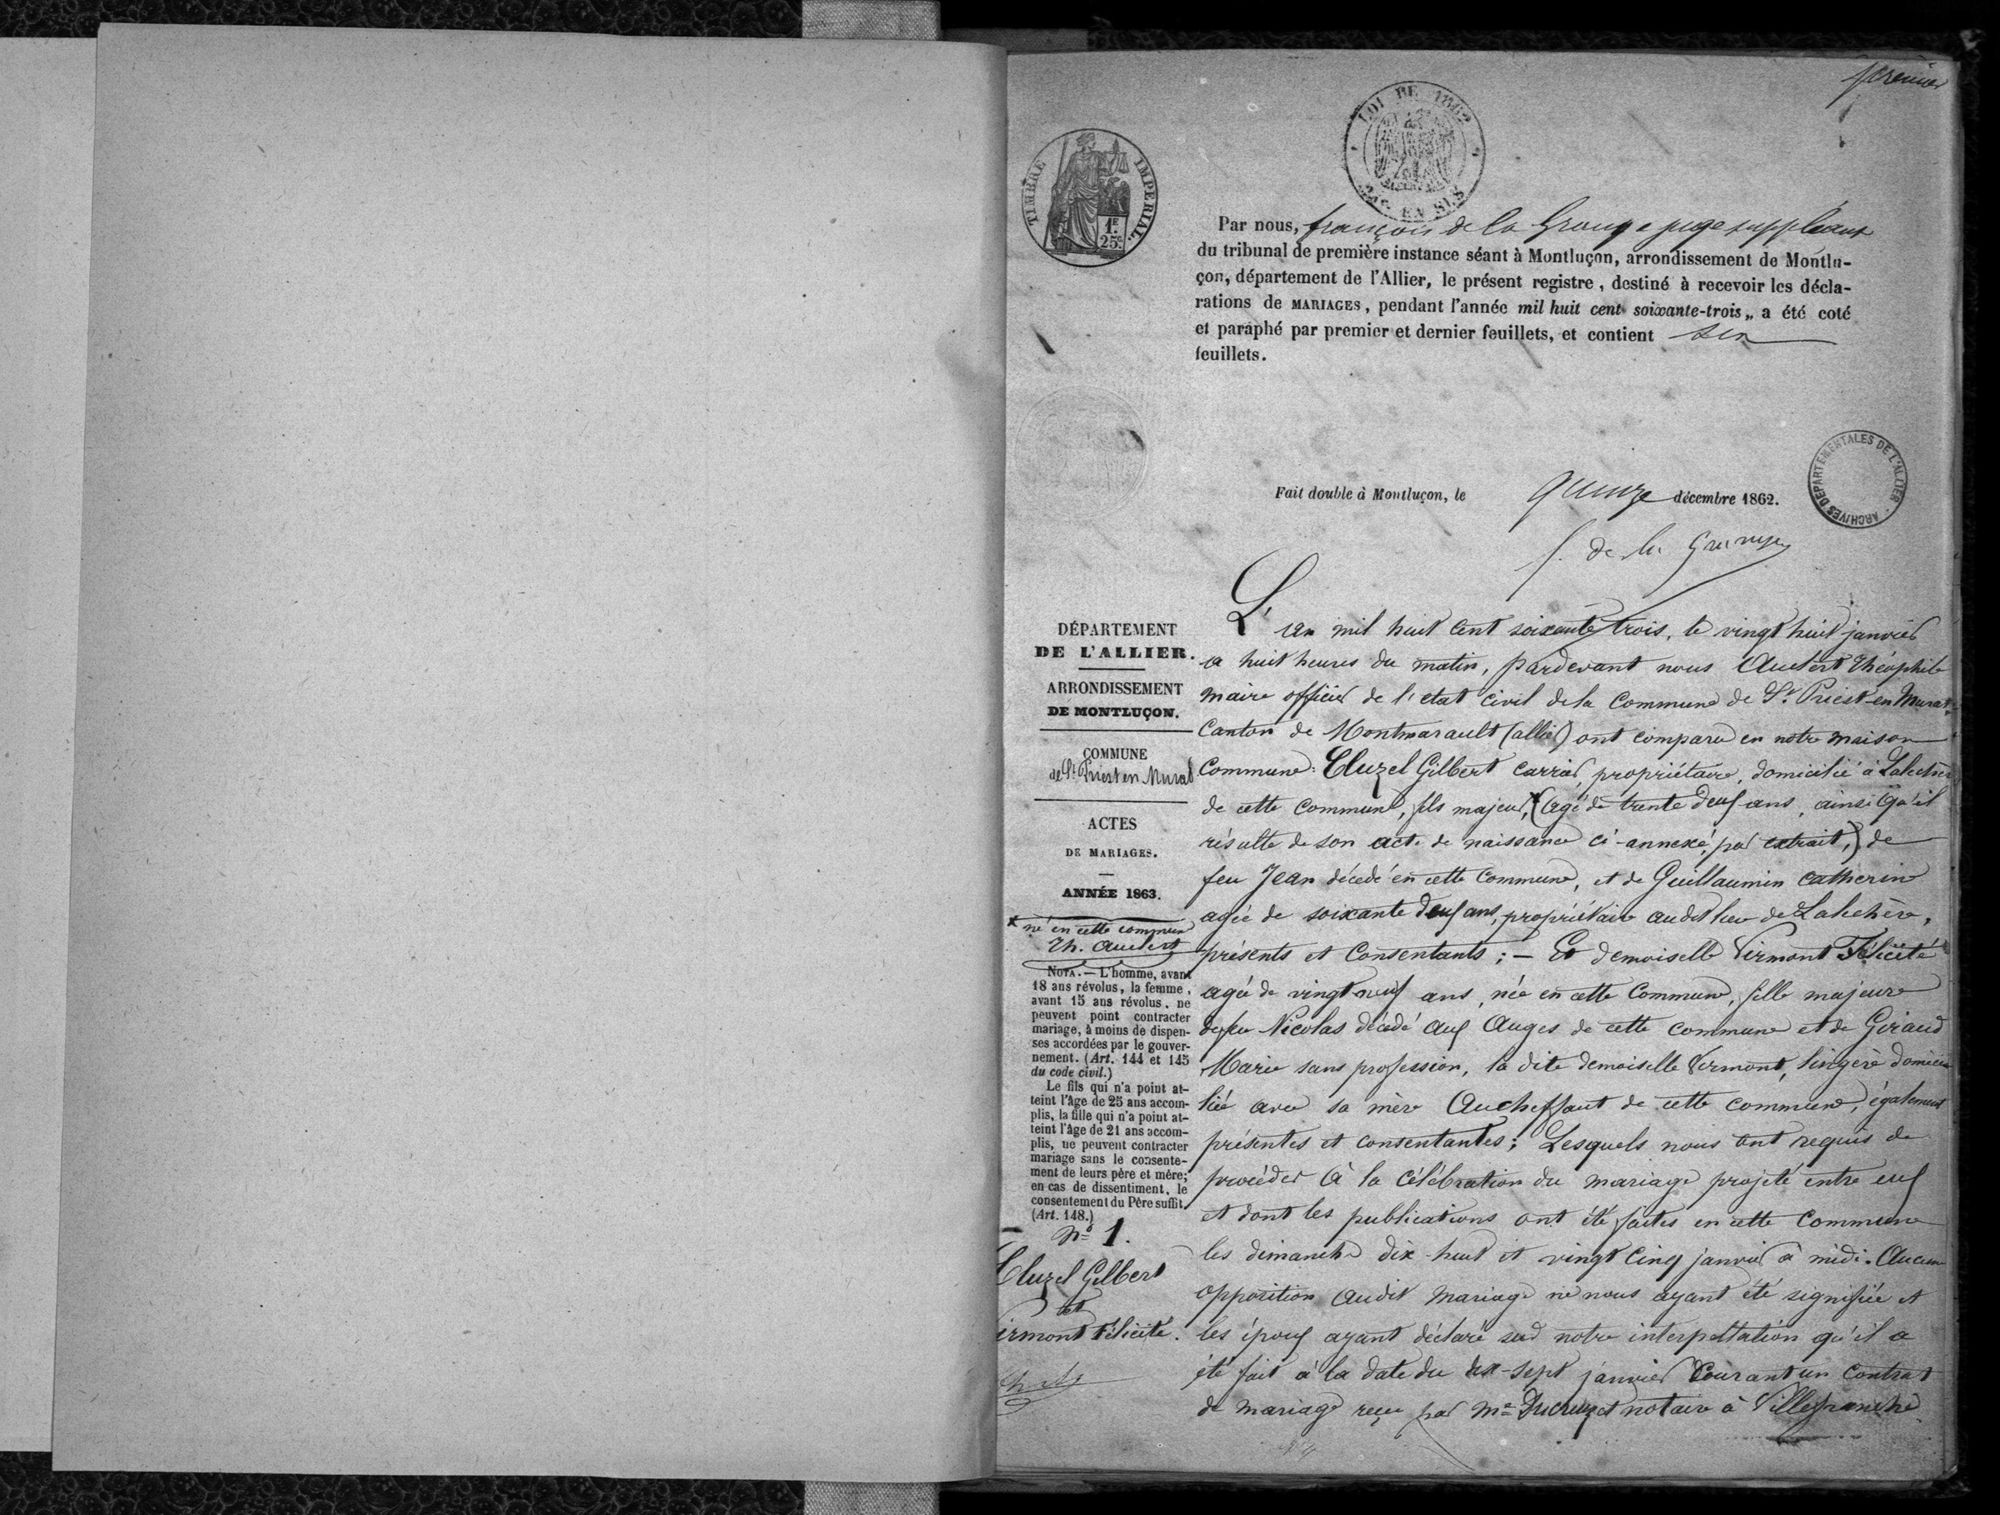 premier
LOI DE 1862
2/10. EN SUS
TIMBRE IMPÉRIAL
1F.
25c.
Par nous, françois de la Grange juge suppléant
du tribunal de première instance séant à Montluçon, arrondissement de Montlu-
çon, département de l'Allier, le présent registre, destiné à recevoir les décla-
rations de MARIAGES, pendant l'année mil huit cent soixante-trois,, a été coté
et paraphé par premier et dernier feuillets, et contient six
feuillets.
ARCHIVES DÉPARTEMENTALES DE L'ALLIER
Fait double à Montluçon, le quinze décembre 1862.
f. de la Grange
DÉPARTEMENT
DE L'ALLIER.
ARRONDISSEMENT
DE MONTLUÇON.
COMMUNE
de St Priest en Murat
ACTES
DE MARIAGES.
ANNÉE 1863.
* né en cette commune
Th. Aucler
NOTA. — L'homme, avant
18 ans révolus, la femme,
avant 15 ans révolus, ne
peuvent point contracter
mariage, à moins de dispen-
ses accordées par le gouver-
nement. (Art. 144 et 145
du code civil.)
Le fils qui n'a point at-
teint l'âge de 25 ans accom-
plis, la fille qui n'a point at-
teint l'âge de 21 ans accom-
plis, ne peuvent contracter
mariage sans le consente-
ment de leurs père et mère;
en cas de dissentiment, le
consentement du Père suffit.
(Art. 148.)
No 1.
Cluzel Gilbert
et
Virmont Félicité.
L'an mil huit cent soixante trois, le vingt huit janvier
a huit heures du matin, pardevant nous Auclert Théophile
maire officier de l'état civil de la Commune de St Priest-en Murat
Canton de Montmarault (allier) ont comparu en notre maison
Commune: Cluzel Gilbert carrier, propriétaire, domicilié à
de cette commune, fils majeur,* (agé de trente deux ans, ainsi qu'il
résulte de son acte de naissance ci-annexé, par extrait,) de
feu Jean décédé en cette commune, et de Guillaumin Catherine
agée de soixante deux ans, propriétaire audit lieu de
présents et consentants; — Et demoiselle Virmont Félicité
agée de vingt neuf ans, née en cette commune, fille majeure
de feu Nicolas décédé aux Auges de cette commune et de Giraud
Marie sans profession, la dite demoiselle Virmont, lingère domici
liée avec sa mère de cette commune, également
présentes et consentantes; Lesquels nous ont requis de
procéder à la célébration du mariage projeté entre eux
et dont les publications ont été faites en cette commune
les dimanche dix-huit et vingt cinq janvier à midi. Aucune
opposition audit mariage ne nous ayant été signifiée et
les époux ayant déclaré sur notre interpellation qu'il a
été fait à la date du dix-sept janvier courant un contrat
de mariage reçu par Me Ducruzet notaire à Villefranche